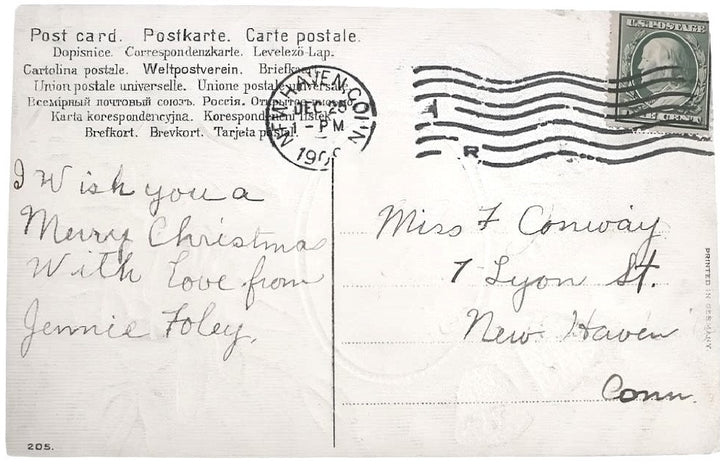 Post card. Postkarte. Carte postale.
Dopisnice. Correspondenzkarte. Levelező-Lap.
Cartolina postale. Weltpostverein. Briefkaart.
Union postale universelle. Unione postale universale.
Всемірный почтовый союзъ. Россія. Открытое письмо.
Karta korespondencyjna. Korespondenční lístek.
Brefkort. Brevkort. Tarjeta postal.
NEW HAVEN, CONN
DEC 25
1-PM
U.S. POSTAGE
CENT
A
R
I Wish you a
Merry Christmas
With Love from
Jennie Foley.
Miss F Conway
7 Lyon St.
New Haven
Conn.
PRINTED IN GERMANY
205.